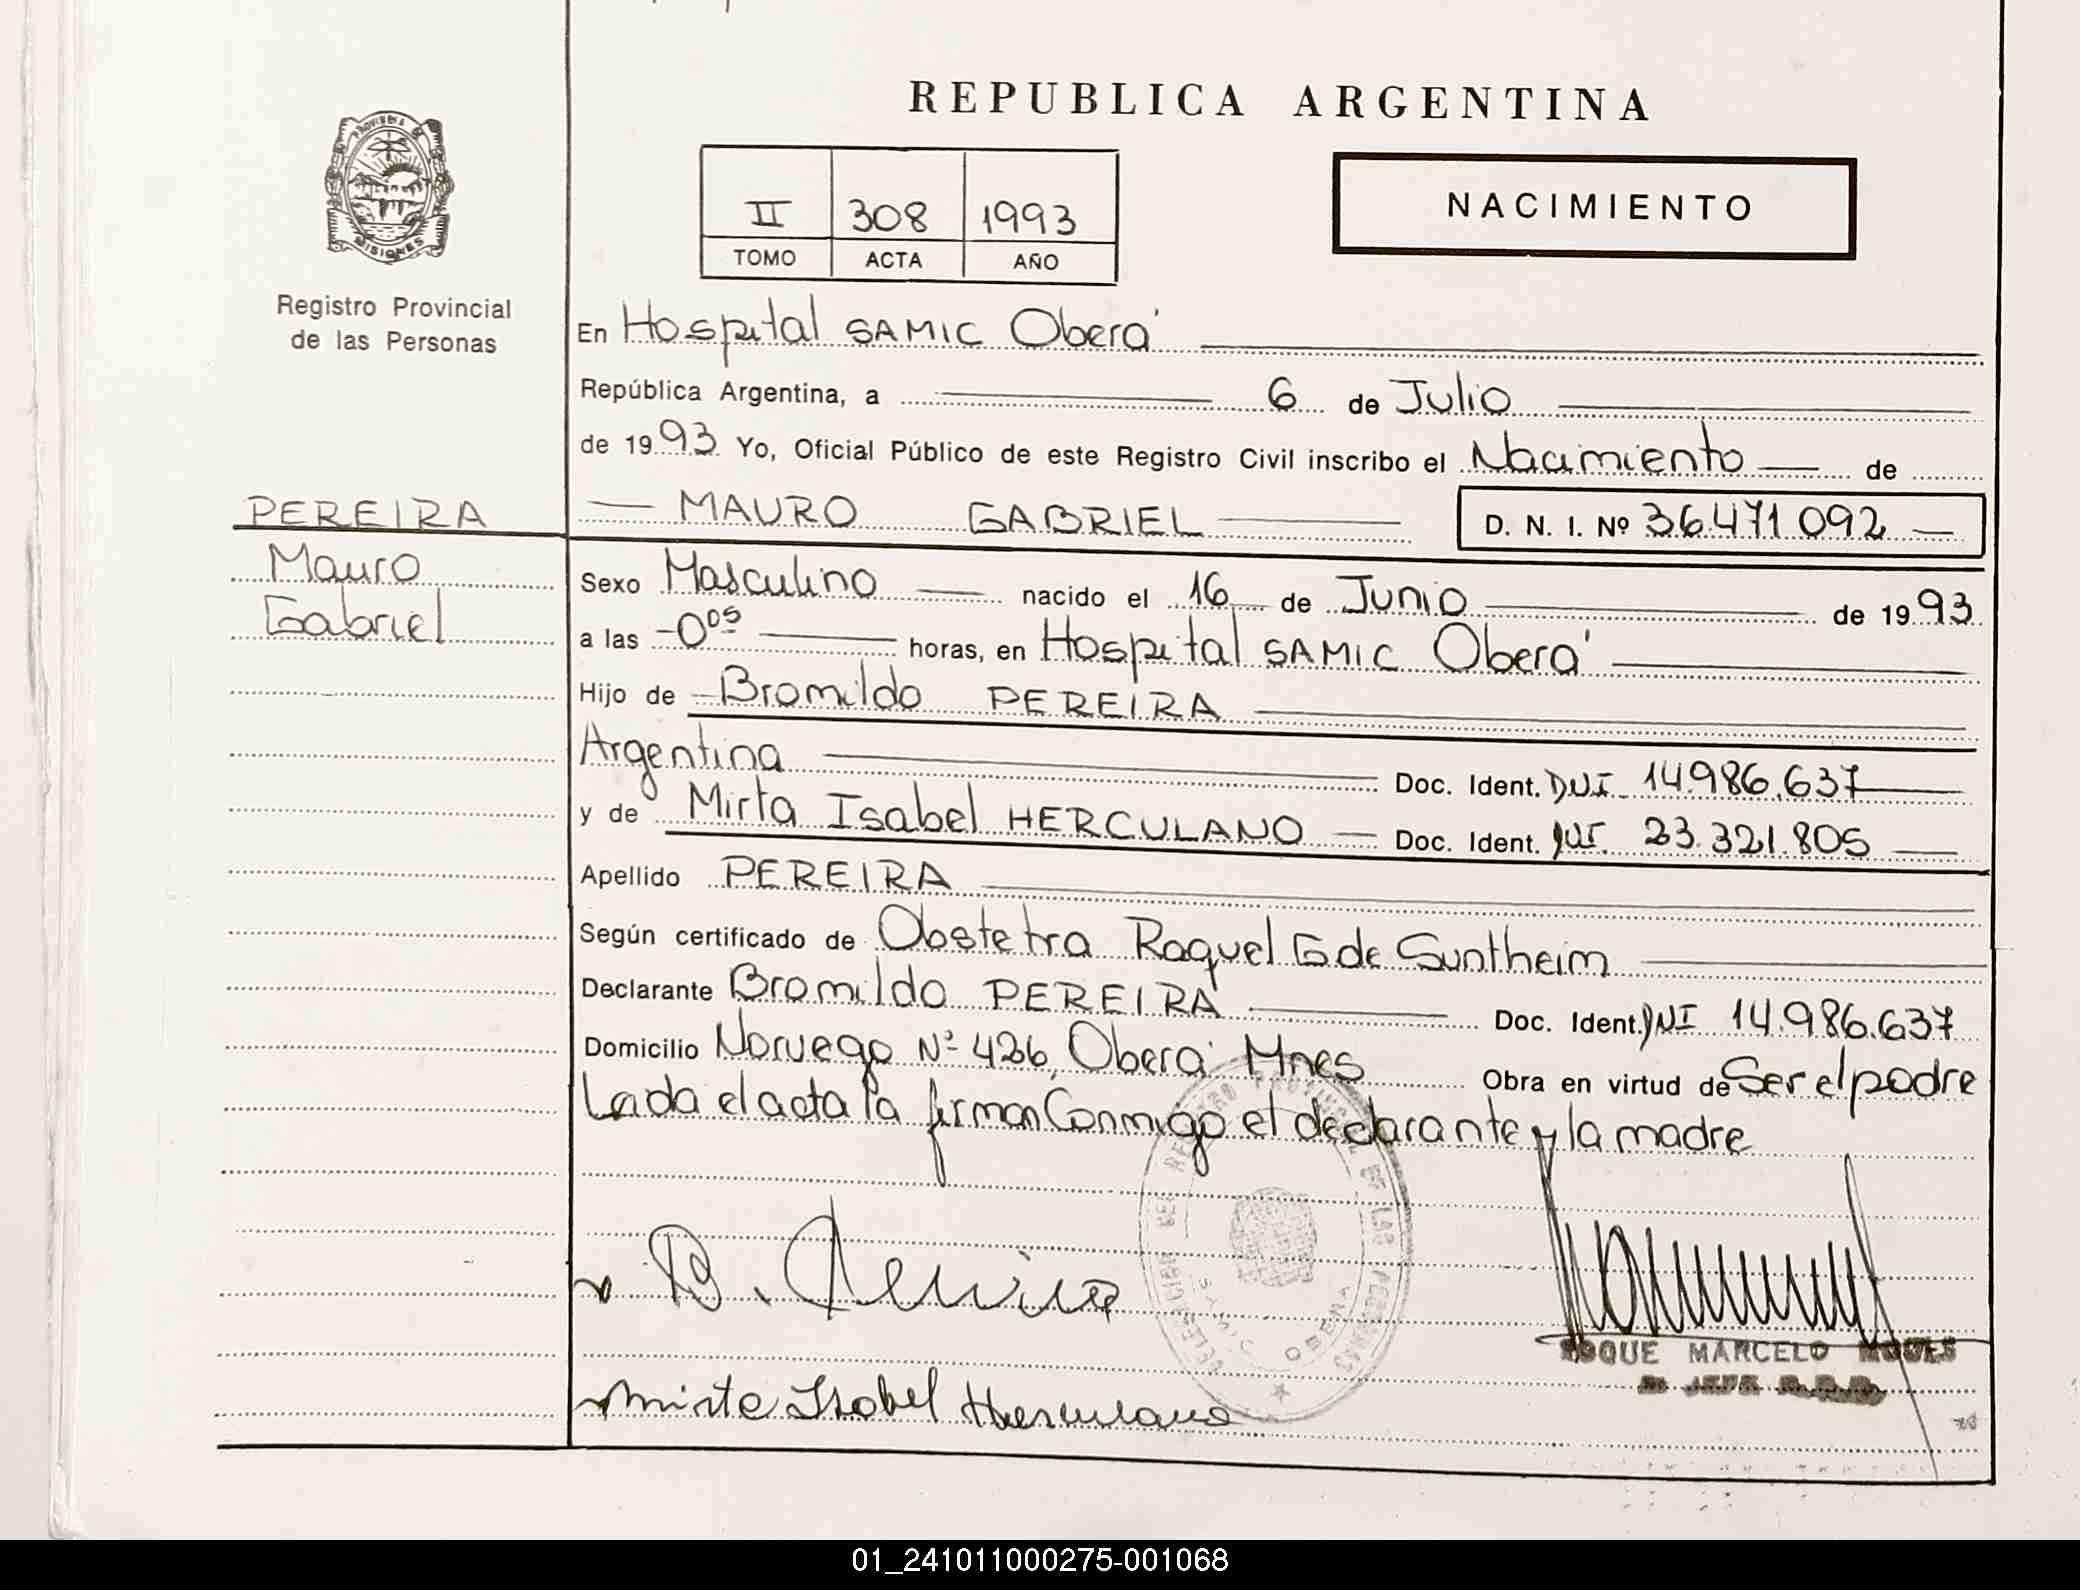 REPUBLICA ARGENTINA
PROVINCIA DE
MISIONES
Registro Provincial
de las Personas
II 308 1993
TOMO ACTA AÑO
NACIMIENTO
En Hospital SAMIC Oberá
República Argentina, a 6 de Julio
de 1993 Yo, Oficial Público de este Registro Civil inscribo el Nacimiento de
PEREIRA
Mauro
Gabriel
MAURO GABRIEL D. N. I. Nº 36.471.092
Sexo Masculino nacido el 16 de Junio de 1993
a las 0 05 horas, en Hospital SAMIC Oberá
Hijo de Bromildo PEREIRA
Argentina Doc. Ident. DNI 14.986.637
y de Mirta Isabel HERCULANO Doc. Ident. DNI 23.321.805
Apellido PEREIRA
Según certificado de Obstetra Raquel G de Suntheim
Declarante Bromildo PEREIRA Doc. Ident. DNI 14.986.637
Domicilio Noruega Nº 426, Oberá Mnes Obra en virtud de Ser el padre
Leida el acta la firman Conmigo el declarante y la madre
REGISTRO PROVINCIAL DE LAS PERSONAS
OBERA
B. Pereira
ROQUE MARCELO
Mirta Isabel Herculano
01_241011000275-001068